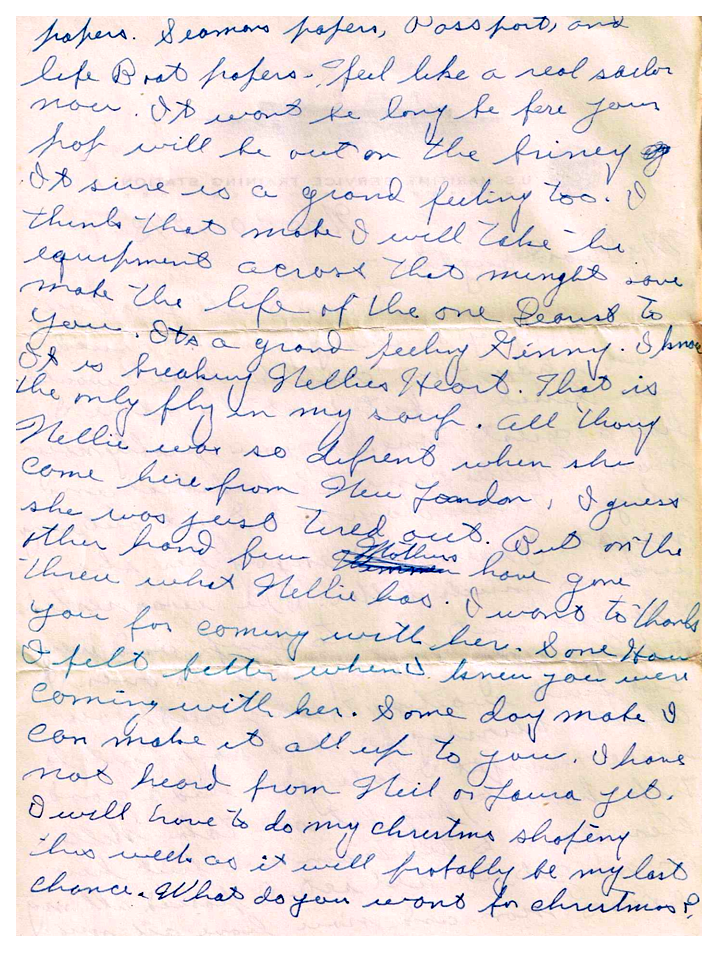 papers. Seamons papers, Passport, and
life Boat papers. I feel like a real sailor
now. It wont be long be fore your
pop will be out on the briney
It sure is a grand feeling too. I
think that make I will take the
equipment across that minght save
make the life of the one Dearest to
you. Its a grand feeling Ginny. I know
It is breaking Nellies Heart. That is
the only fly in my soup. All thoug
Nellie was so difrent when she
come here from New London, I guess
she was just tired out. But on the
other hand few Mothers have gone
threw what Nellie has. I want to thank
you for coming with her. Some How
I felt better when I knew you were
coming with her. Some day make I
can make it all up to you. I have
not heard from Neil or Laura yet.
I will have to do my christms shopeng
this week as it will probably be my last
chance. What do you want for christmas?